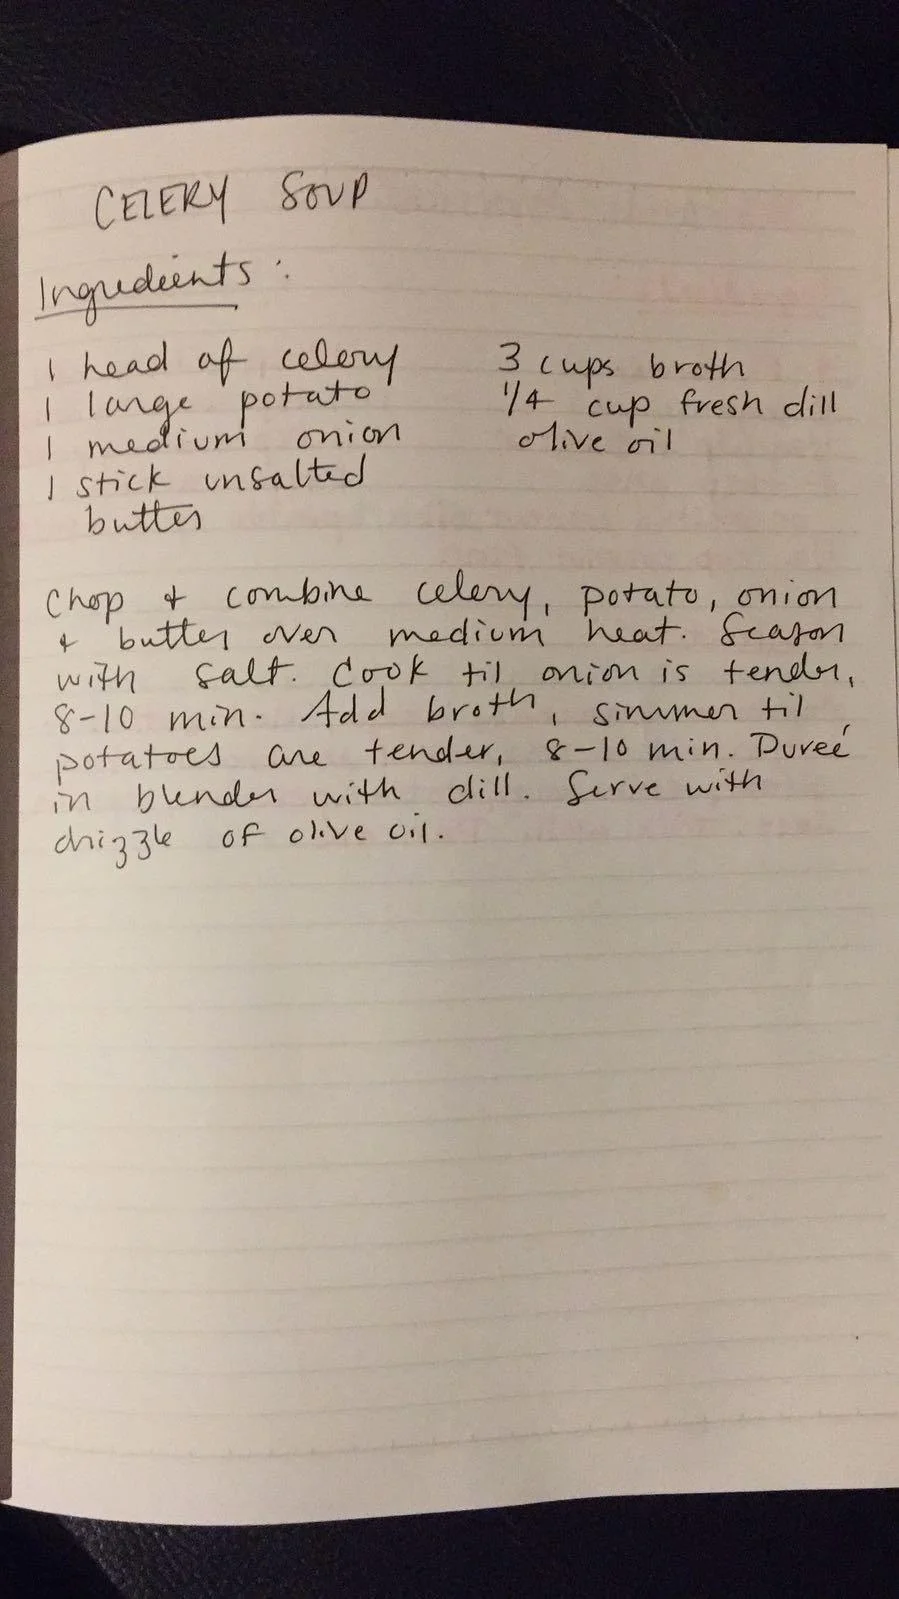 CELERY SOUP
Ingredients:
1 head of celery
1 large potato
1 medium onion
1 stick unsalted
butter
3 cups broth
1/4 cup fresh dill
olive oil
Chop & combine celery, potato, onion
& butter over medium heat. Season
with salt. Cook til onion is tender,
8-10 min. Add broth, simmer til
potatoes are tender, 8-10 min. Pureé
in blender with dill. Serve with
drizzle of olive oil.